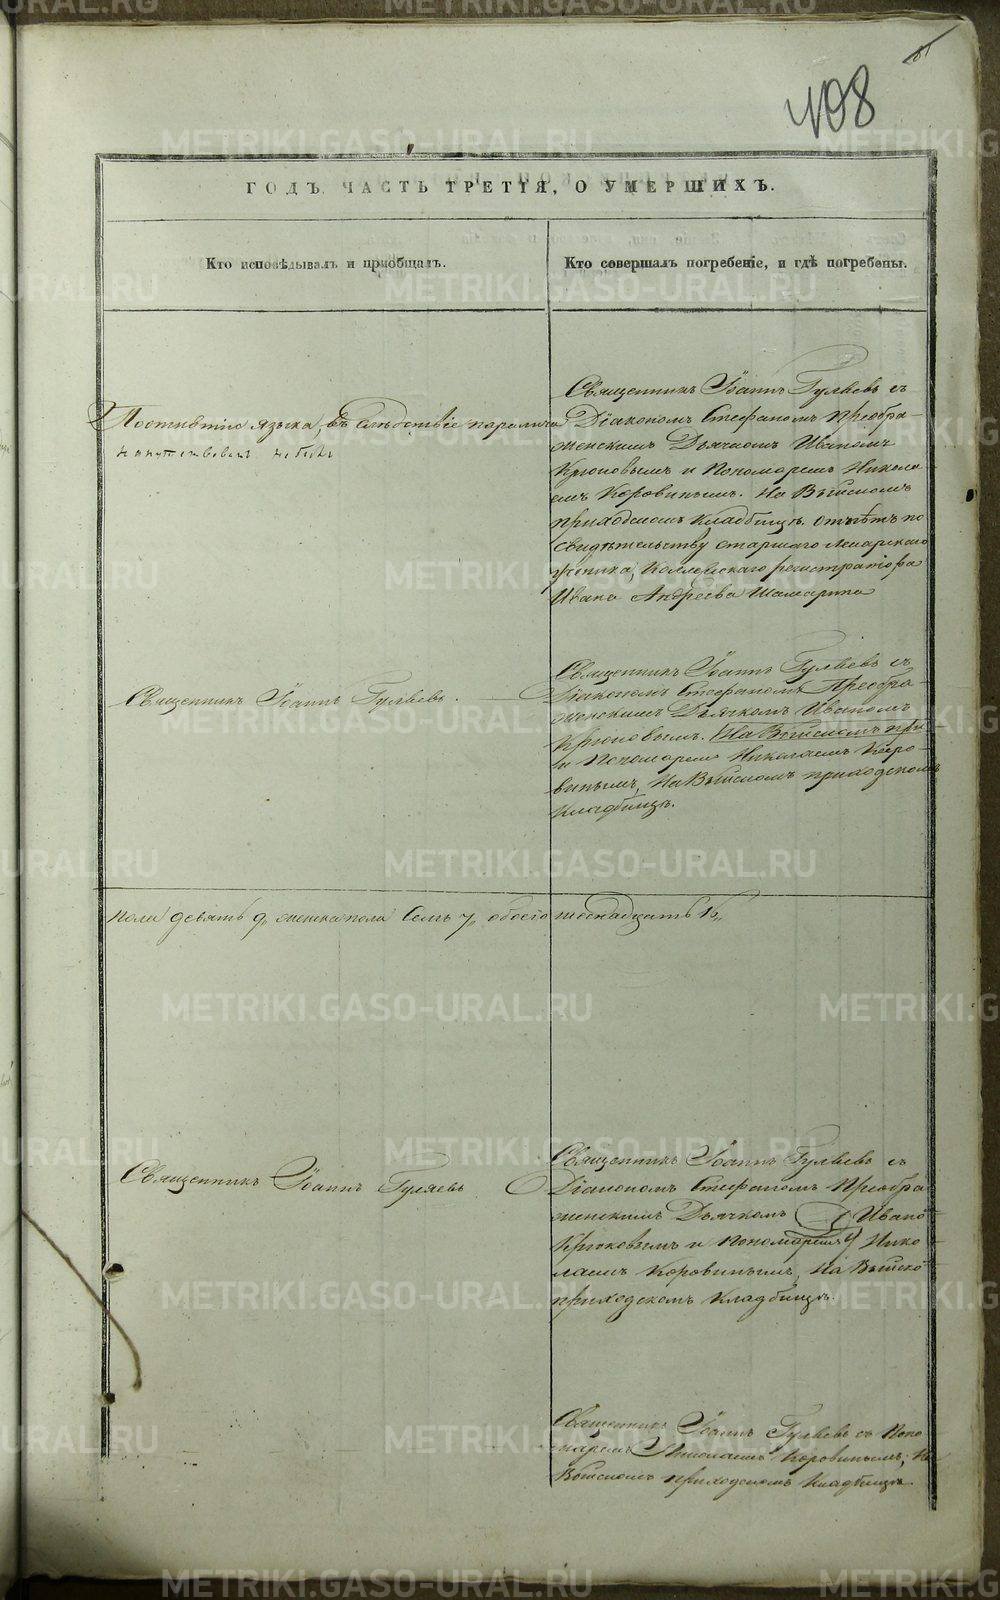 408
ГОДЪ. ЧАСТЬ ТРЕТІЯ, О УМЕРШИХЪ.
Кто исповѣдывалъ и пріобщалъ.
Кто совершалъ погребеніе, и гдѣ погребены.
языка, въ слѣдствіе паралича
не былъ
Священникъ Іоаннъ Гуляевъ съ
Діакономъ Стефаномъ Преобра-
женскимъ Дьячкомъ Иваномъ
Крюковымъ и Пономаремъ Никола-
емъ Коровинымъ. На Выйскомъ
приходскомъ кладбищѣ. отпѣтъ по
свидѣтельству старшаго Лекарскаго
ученика, Коллежскаго регистратора
Ивана Андреева Шамарина
Священникъ Іоаннъ Гуляевъ.
Священникъ Іоаннъ Гуляевъ съ
Діакономъ Стефаномъ Преобра-
женскимъ Дьячкомъ Иваномъ
Крюковымъ. На Выйскомъ при
и Пономарем Николаемъ Коро-
винымъ, На Выйскомъ приходскомъ
кладбищѣ.
пола девять 9, женска пола Семь 7, обоего шеснадцать 16,
Священникъ Іоаннъ Гуляевъ
Священникъ Іоаннъ Гуляевъ съ
Діакономъ Стефаномъ Преобра-
женскимъ Дьячкомъ Ивано
Крюковымъ и Пономаремъ Нико-
лаемъ Коровинымъ, На Выйско
приходскомъ кладбищѣ.
Священникъ Іоаннъ Гуляевъ съ Поно-
маремъ Николаемъ Коровинымъ, На
Выйскомъ приходскомъ кладбищѣ.
METRIKI.GASO-URAL.RU